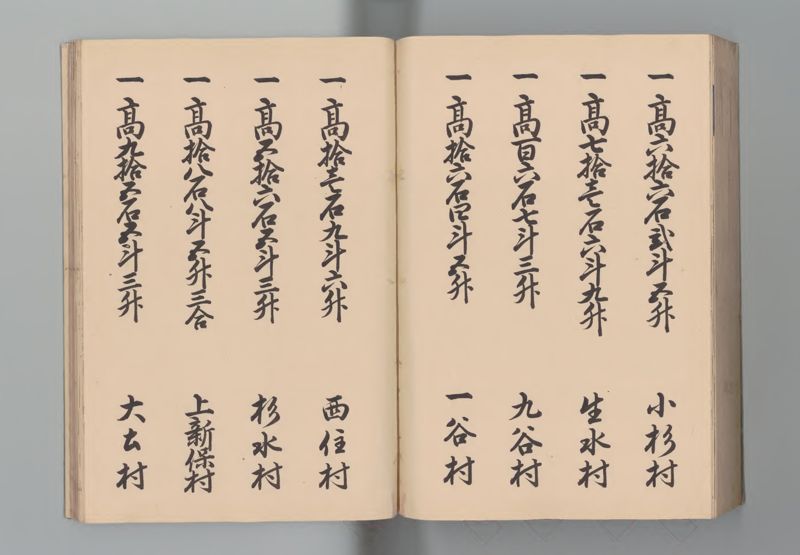 一 高六拾六石弐斗五升 小杉村
一 高七拾壱石六斗九升 生水村
一 高百六石七斗三升 九谷村
一 高拾六石四斗五升 一谷村
一 高拾壱石九斗六升 西住村
一 高五拾六石五斗三升 杉水村
一 高拾八石八斗五升三合 上新保村
一 高九拾五石五斗三升 大土村